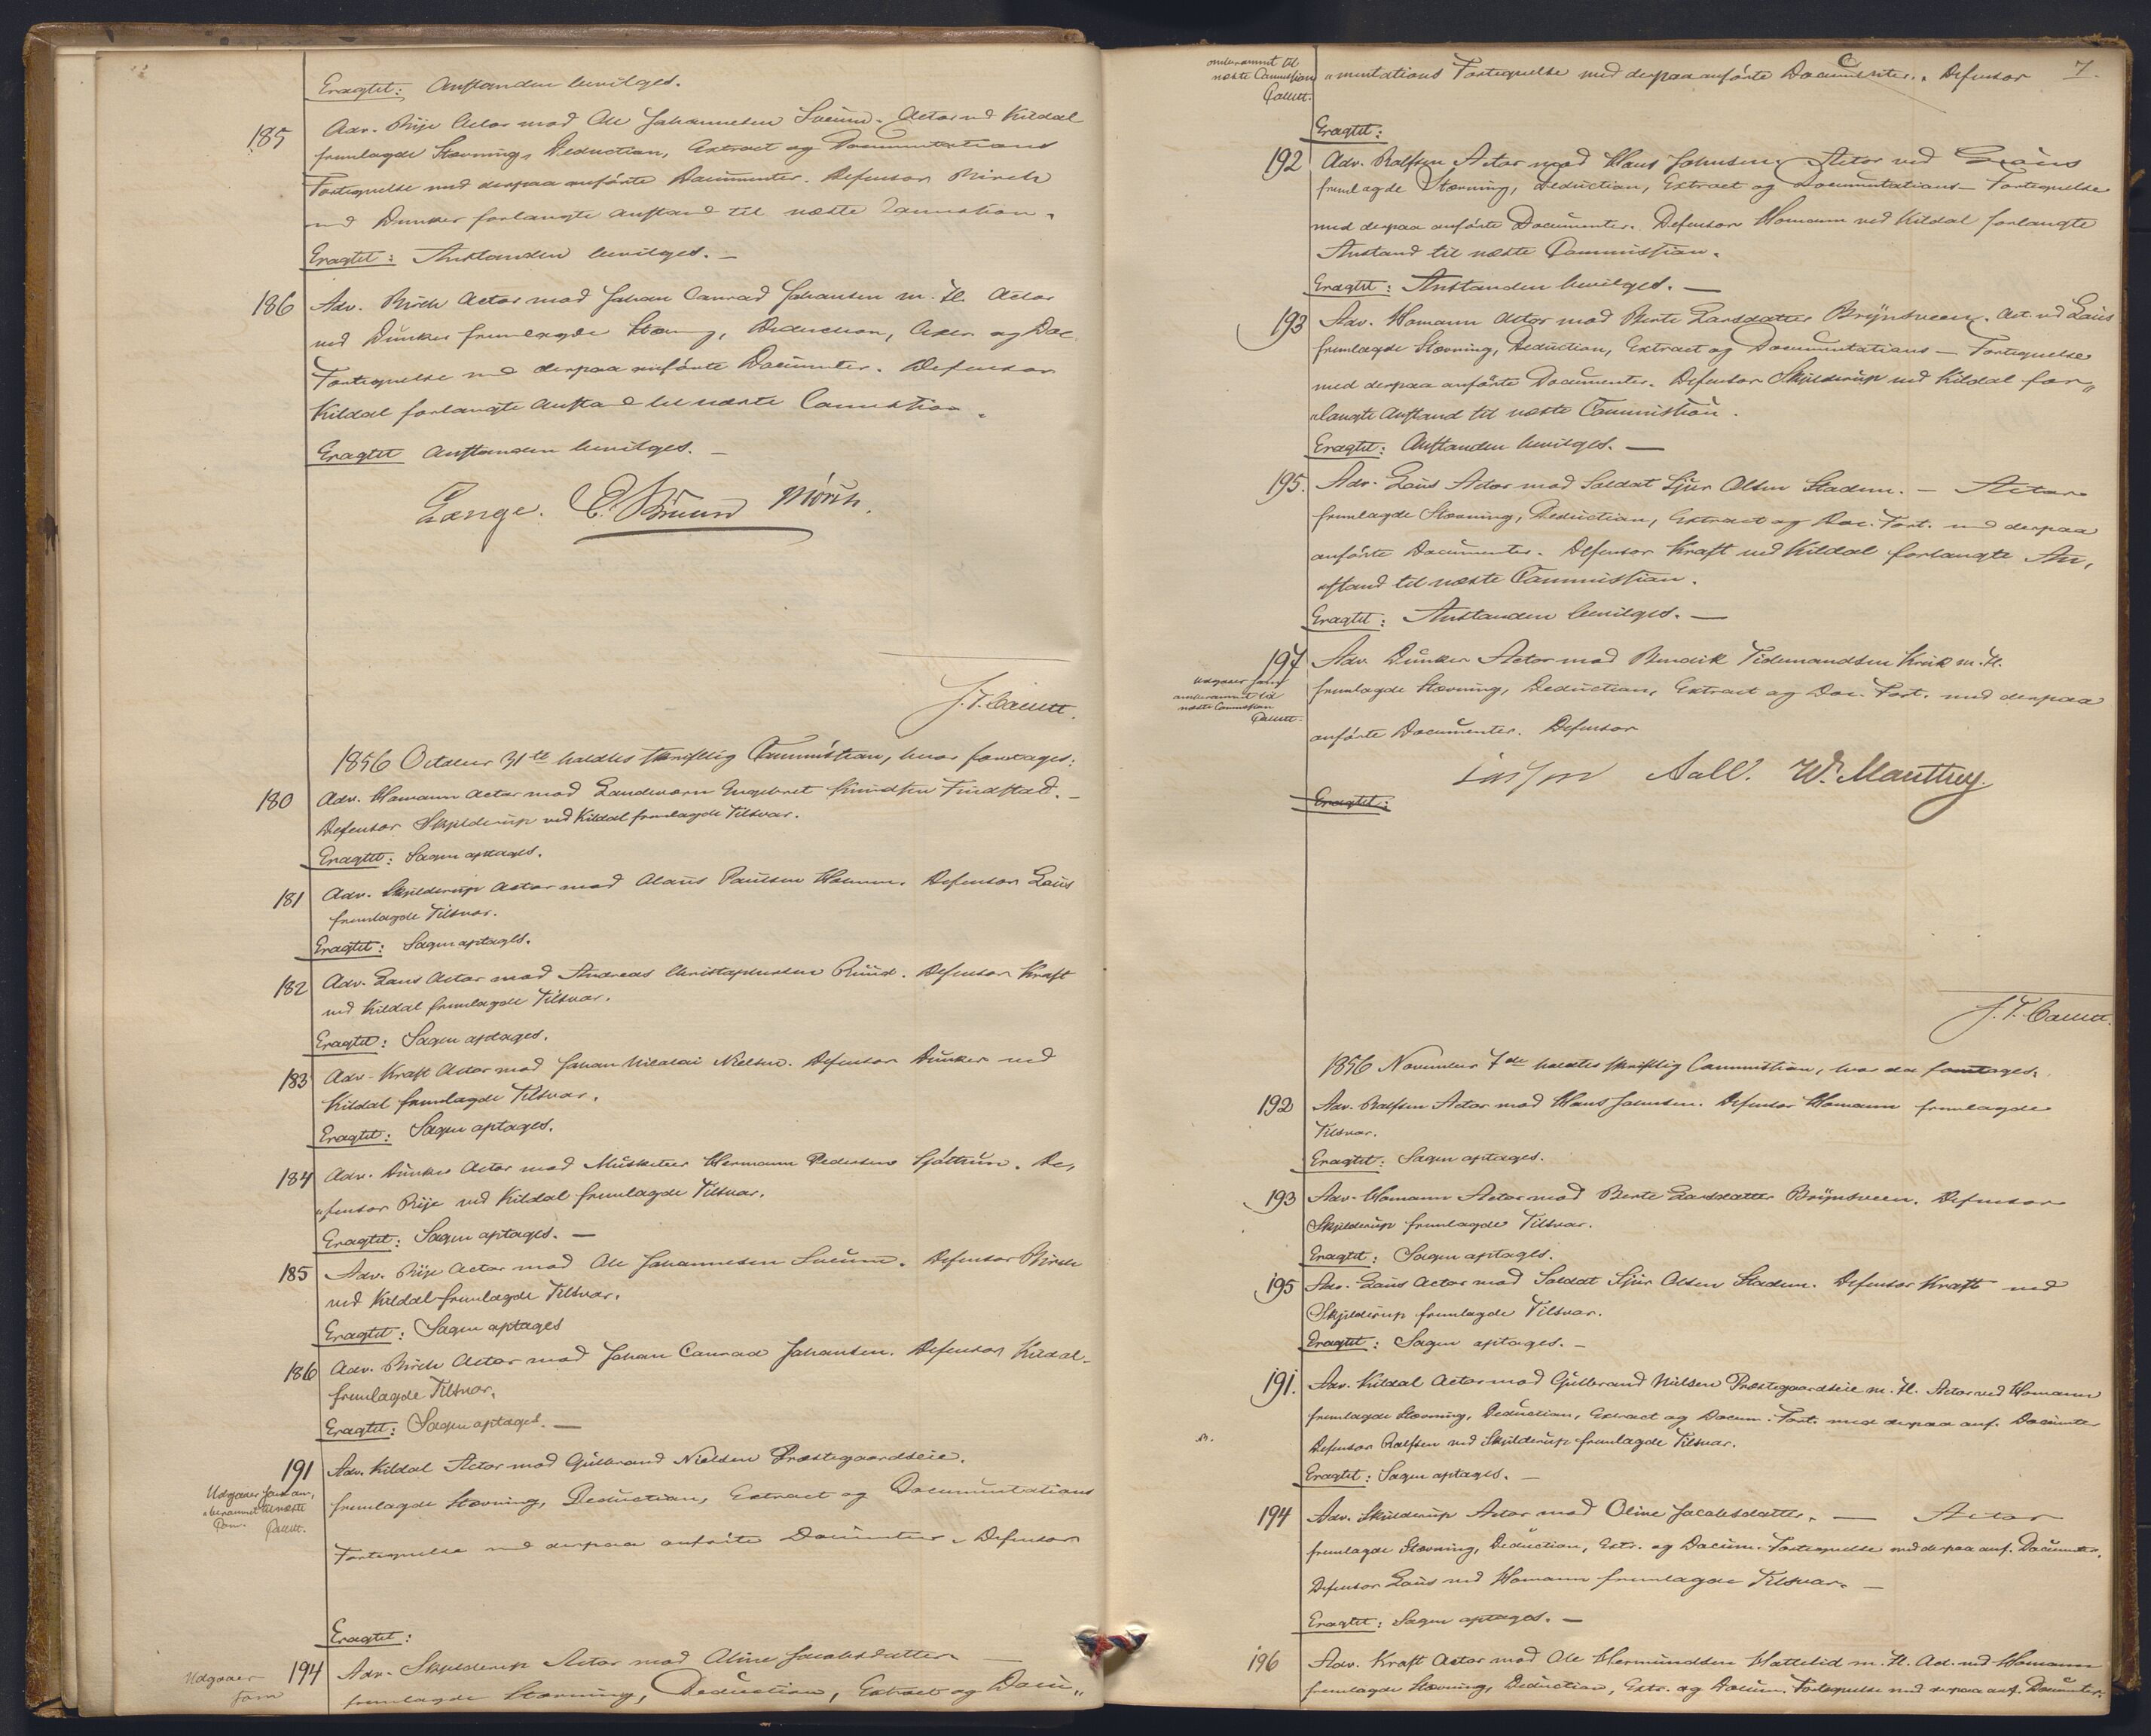 Eragtet: Anstanden bevilges.
185 Adv. Rije Actor mod Ole Johannesen Sveum. Actor ved Kildal
fremlagde Stevning, Deduction, Extract og Documentations
Fortegnelse med derpaa anförte Documenter. Defensor Birch
ved Dunker forlangte Anstand til næste Commission.
Eragtet: Anstanden bevilges. —
186 Adv. Birch Actor mod Johan Conrad Johansen m. Fl. Actor
ved Dunker fremlagde Stevning, Deduction, Extr. og Doc.
Fortegnelse med derpaa anförte Documenter. Defensor
Kildal forlangte Anstand til næste Commission.
Eragtet Anstanden bevilges. —
Lange. E. Bruun Mörch.
J. F. Collett.
1856 October 31te holdtes skriftlig Commission, hvor foretages:
180 Adv. Homann Actor mod Landværn Engebret Knudsen Findstad. —
Defensor Skjelderup ved Kildal fremlagde Tilsvar.
Eragtet: Sagen optages.
181 Adv. Skjelderup Actor mod Olaus Paulsen Holmen. Defensor Lous
fremlagde Tilsvar.
Eragtet: Sagen optages.
182 Adv. Lous Actor mod Andreas Christophersen Ruud. Defensor Kraft
ved Kildal fremlagde Tilsvar.
Eragtet: Sagen optages.
183 Adv. Kraft Actor mod Johan Nicolai Nielsen. Defensor Dunker ved
Kildal fremlagde Tilsvar.
Eragtet: Sagen optages.
184 Adv. Dunker Actor mod Musketeer Hermann Pedersen De„
„fensor Rije ved Kildal fremlagde Tilsvar.
Eragtet: Sagen optages. —
185 Adv. Rije Actor mod Ole Johannesen Sveum. Defensor Birch
ved Kildal fremlagde Tilsvar.
Eragtet: Sagen optages
186 Adv. Birch Actor mod Johan Conrad Johansen. Defensor Kildal
fremlagde Tilsvar.
Eragtet: Sagen optages. —
191 Adv. Kildal Actor mod Gulbrand Nielsen Præstegaardseie.
Udgaaer som an„
„berammet til næste
Com. Collett.
fremlagde Stevning, Deduction, Extract og Documentations
Fortegnelse med derpaa anförte Documenter. Defensor
Eragtet:
Udgaaer
som
194 Adv. Skjelderup Actor mod Oline Jacobsdatter —
fremlagde Stevning, Deduction, Extract og Docu„
omberammet til
næste Commission
Collett.
7.
„mentations Fortegnelse med derpaa anförte Documenter. Defensor
Eragtet:
192 Adv. Rolfsen Actor mod Hans Johnsen. Actor ved Lous
fremlagde Stevning, Deduction, Extract og Documentations — Fortegnelse
med derpaa anförte Documenter. Defensor Homann ved Kildal forlangte
Anstand til næste Commission.
Eragtet: Anstanden bevilges. —
193 Adv. Homann Actor mod Berte Larsdatter Brynsveen. Act. ved Lous
fremlagde Stevning, Deduction, Extract og Documentations — Fortegnelse
med derpaa anförte Documenter. Defensor Skjelderup ved Kildal for„
„langte Anstand til næste Commission.
Eragtet: Anstanden bevilges. —
195. Adv. Lous Actor mod Soldat Sjur Olsen Stadem. — Actor
fremlagde Stevning, Deduction, Extract og Doc. Fort. med derpaa
anförte Documenter. Defensor Kraft ved Kildal forlangte An„
„stand til næste Commission.
Eragtet: Anstanden bevilges. —
197 Adv. Dunker Actor mod Bendik Tidemandsen Krik m. Fl.
Udgaaer som
omberammet til
næste Commission
Collett.
fremlagde Stevning, Deduction, Extract og Doc. Fort. med derpaa
anförte Documenter. Defensor
Aall. W. Manthey.
Eragtet:
J. F. Collett.
1856 November 7de holdtes skriftlig Commission, hvor da foretages:
192 Adv. Rolfsen Actor mod Hans Johnsen. Defensor Homann fremlagde
Tilsvar.
Eragtet: Sagen optages.
193 Adv. Homann Actor mod Berte Larsdatter Brynsveen. Defensor
Skjelderup fremlagde Tilsvar.
Eragtet: Sagen optages.
195 Adv. Lous Actor mod Soldat Sjur Olsen Stadem. Defensor Kraft ved
Skjelderup fremlagde Tilsvar.
Eragtet: Sagen optages. —
191. Adv. Kildal Actor mod Gulbrand Nielsen Præstegaardseie m. Fl. Actor ved Homann
fremlagde Stevning, Deduction, Extract og Docum. Fort. med derpaa anf. Documenter
Defensor Rolfsen ved Skjelderup fremlagde Tilsvar.
Eragtet: Sagen optages. —
194 Adv. Skjelderup Actor mod Oline Jacobsdatter. — Actor
fremlagde Stevning, Deduction, Extr. og Docum. Fortegnelse med derpaa anf. Documenter.
Defensor Lous ved Homann fremlagde Tilsvar. —
Eragtet: Sagen optages. —
196 Adv. Kraft Actor mod Ole Hermundsen Hattelid m. Fl. Act. ved Homann
fremlagde Stevning, Deduction, Extr. og Docum. Fortegnelse med derpaa anf. Documenter.